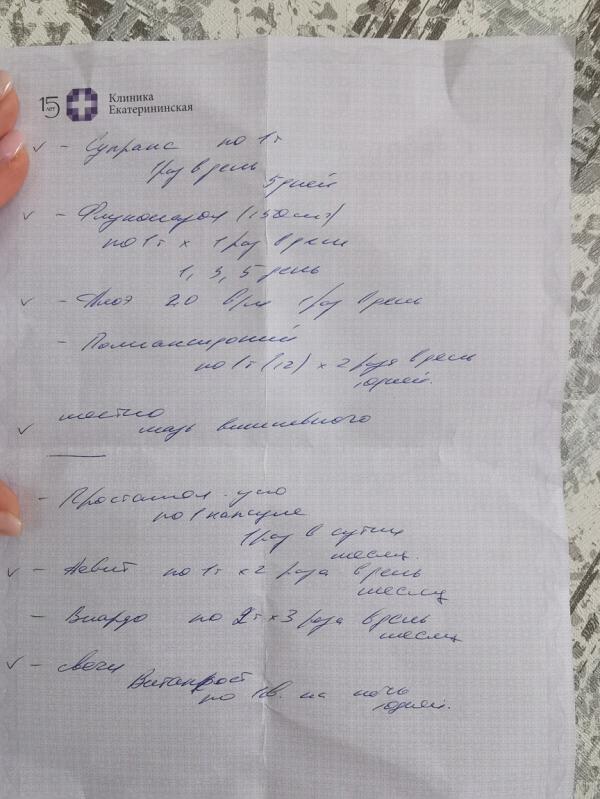 15 лет
Клиника
Екатерининская
✓ – Супракс по 1т
1 раз в день
5 дней
✓ – Флуконазол (150мг)
по 1т x 1 раз в день
1, 3, 5 день
✓ – Алоэ 2,0 в/м 1 раз в день
– Полиоксидоний
по 1т (12) x 2 раза в день
10 дней.
✓ местно
мазь вишневского
– Простамол-уно
по 1 капсуле
1 раз в сутки
месяц.
✓ – Аевит по 1т x 2 раза в день
месяц
– Виардо по 2т x 3 раза в день
месяц
✓ – свечи
Витапрост
по 1св. на ночь
10 дней.